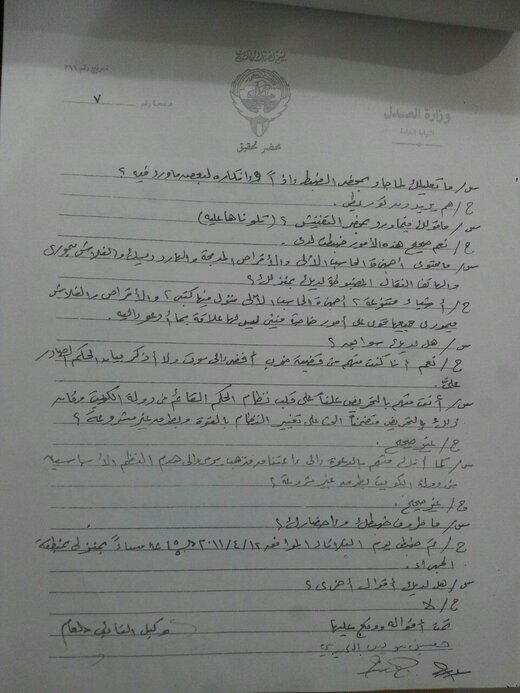 صفحة رقم ٧
وزارة العدل
النيابة العامة
محضر تحقيق
س/ ما تعليلك لما جاء بمحضر الضبط إذاً وإنكاره لبعض ما ورد فيه ؟
ج/ هم يريدون
س/ ما قولك فيما ورد بمحضر التفتيش ؟ (تلوناها عليه)
ج/ نعم صحيح هذه الأمور ضبطت لدي .
س/ ما محتوى أجهزة الحاسب الآلي والأقراص المدمجة والهارد ديسك والفلاش ميموري
والهاتف النقال المضبوطة لديك بمنزلك ؟
ج/ أشياء متنوعة ؟ أجهزة الحاسب الآلي منزل منها كتب ؟ والأقراص والفلاش
ميموري جميعها تحوي على أمور خاصة فيني ليس لها علاقة بما أدعو إليه .
س/ هل لديك سوابق ؟
ج/ نعم أنا كنت متهم من قضية ضرب أفضى إلى موت ولا أذكر بيان الحكم الصادر
عليّ .
س/ أنت متهم بالتحريض علناً على قلب نظام الحكم القائم من دولة الكويت وكان
ذلك بالتحريض متضمناً الحث على تغيير النظام بالقوة وبطرق غير مشروعة ؟
ج/ غير صحيح .
س/ كما أنك متهم بالدعوة إلى اعتناق مذهب يرمي إلى هدم النظم الأساسية
من دولة الكويت بطرق غير مشروعة ؟
ج/ غير صحيح .
س/ ما ظروف ضبطك وإحضارك ؟
ج/ تم ضبطي يوم الثلاثاء الموافق ٢٠١١/٤/١٢ مساءً بمنزلي بمنطقة
الجهراء .
س/ هل لديك أقوال أخرى ؟
ج/ لا
تمت أقواله ووقع عليها
وكيل النائب العام